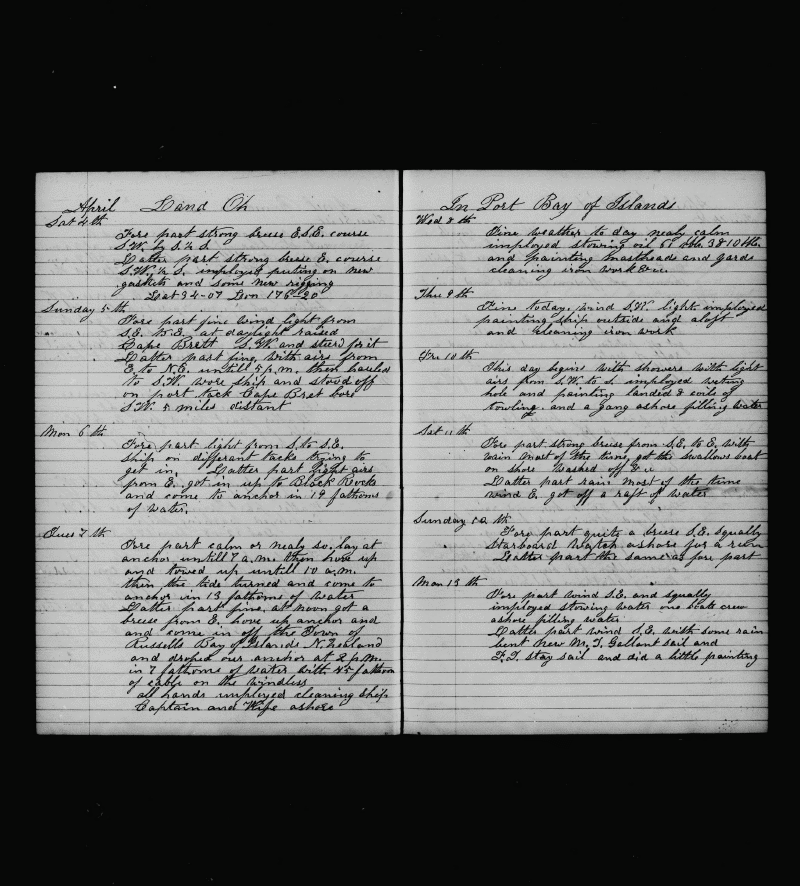 April Land Oh
Sat 4th
Fore part strong breese E.S.E. course
S.W. by S. ½ S
Latter part strong breese E. course
S.W. ½ S. imployed puting on new
gaskets and some new rigging
Lat 34-07 Lon 176-20
Sunday 5th
Fore part fine wind light from
S.E. at daylight raised
Cape Brett S.W. and steerd for it
Latter part fine, with airs from
E to N.E. untill 5 p.m. then hauled
to S.W. wore ship and stood off
on port tack Cape Bret bore
S.W. 5 miles distant
Mon 6th
Fore part light from S. to S.E.
ship on different tacks trying to
get in. Latter part light airs
from E. got in up to Black Rocks
and come to anchor in 19 fathoms
of water.
Tues 7th
Fore part calm or nealy so, lay at
anchor untill 7 a.m. then hove up
and towed up untill 10 a.m.
then the tide turned and come to
anchor in 13 fathoms of water
Latter part fine, at noon got a
breese from E. hove up anchor and
and come in off the Town of
Russells Bay of Islands N. Zealand
and droped our anchor at 2 p.m.
in 7 fathoms of water with 45 fathom
of cable on the windless
all hands imployed cleaning ship
Captain and Wife ashore
In Port Bay of Islands
Wed 8th
Fine weather to day nealy calm
imployed stowing oil
and painting mastheads and yards
cleaning iron work &c
Thu 9th
Fine today, wind S.W. light imployed
painting ship outside and aloft
and cleaning iron work
Fri 10th
This day begins with showers with light
airs from S.W. to S. imployed weting
hole and painting landed 8 coils of
towline. and a gang ashore filling water
Sat 11th
Fore part strong breese from S.E. to E. with
rain most of the time, got the swallows boat
on shore washed off &c
Latter part rain most of the time
wind E. got off a raft of water
Sunday 12th
Fore part quite a breese S.E. squally
Starboard Watch ashore for a run
Latter part the same as fore part
Mon 13th
Fore part wind S.E. and squally
imployed stowing water one boats crew
ashore filling water
Latter part wind S.E. with some rain
bent new M.T. Gallant sail and
F.T. stay sail and did a little painting